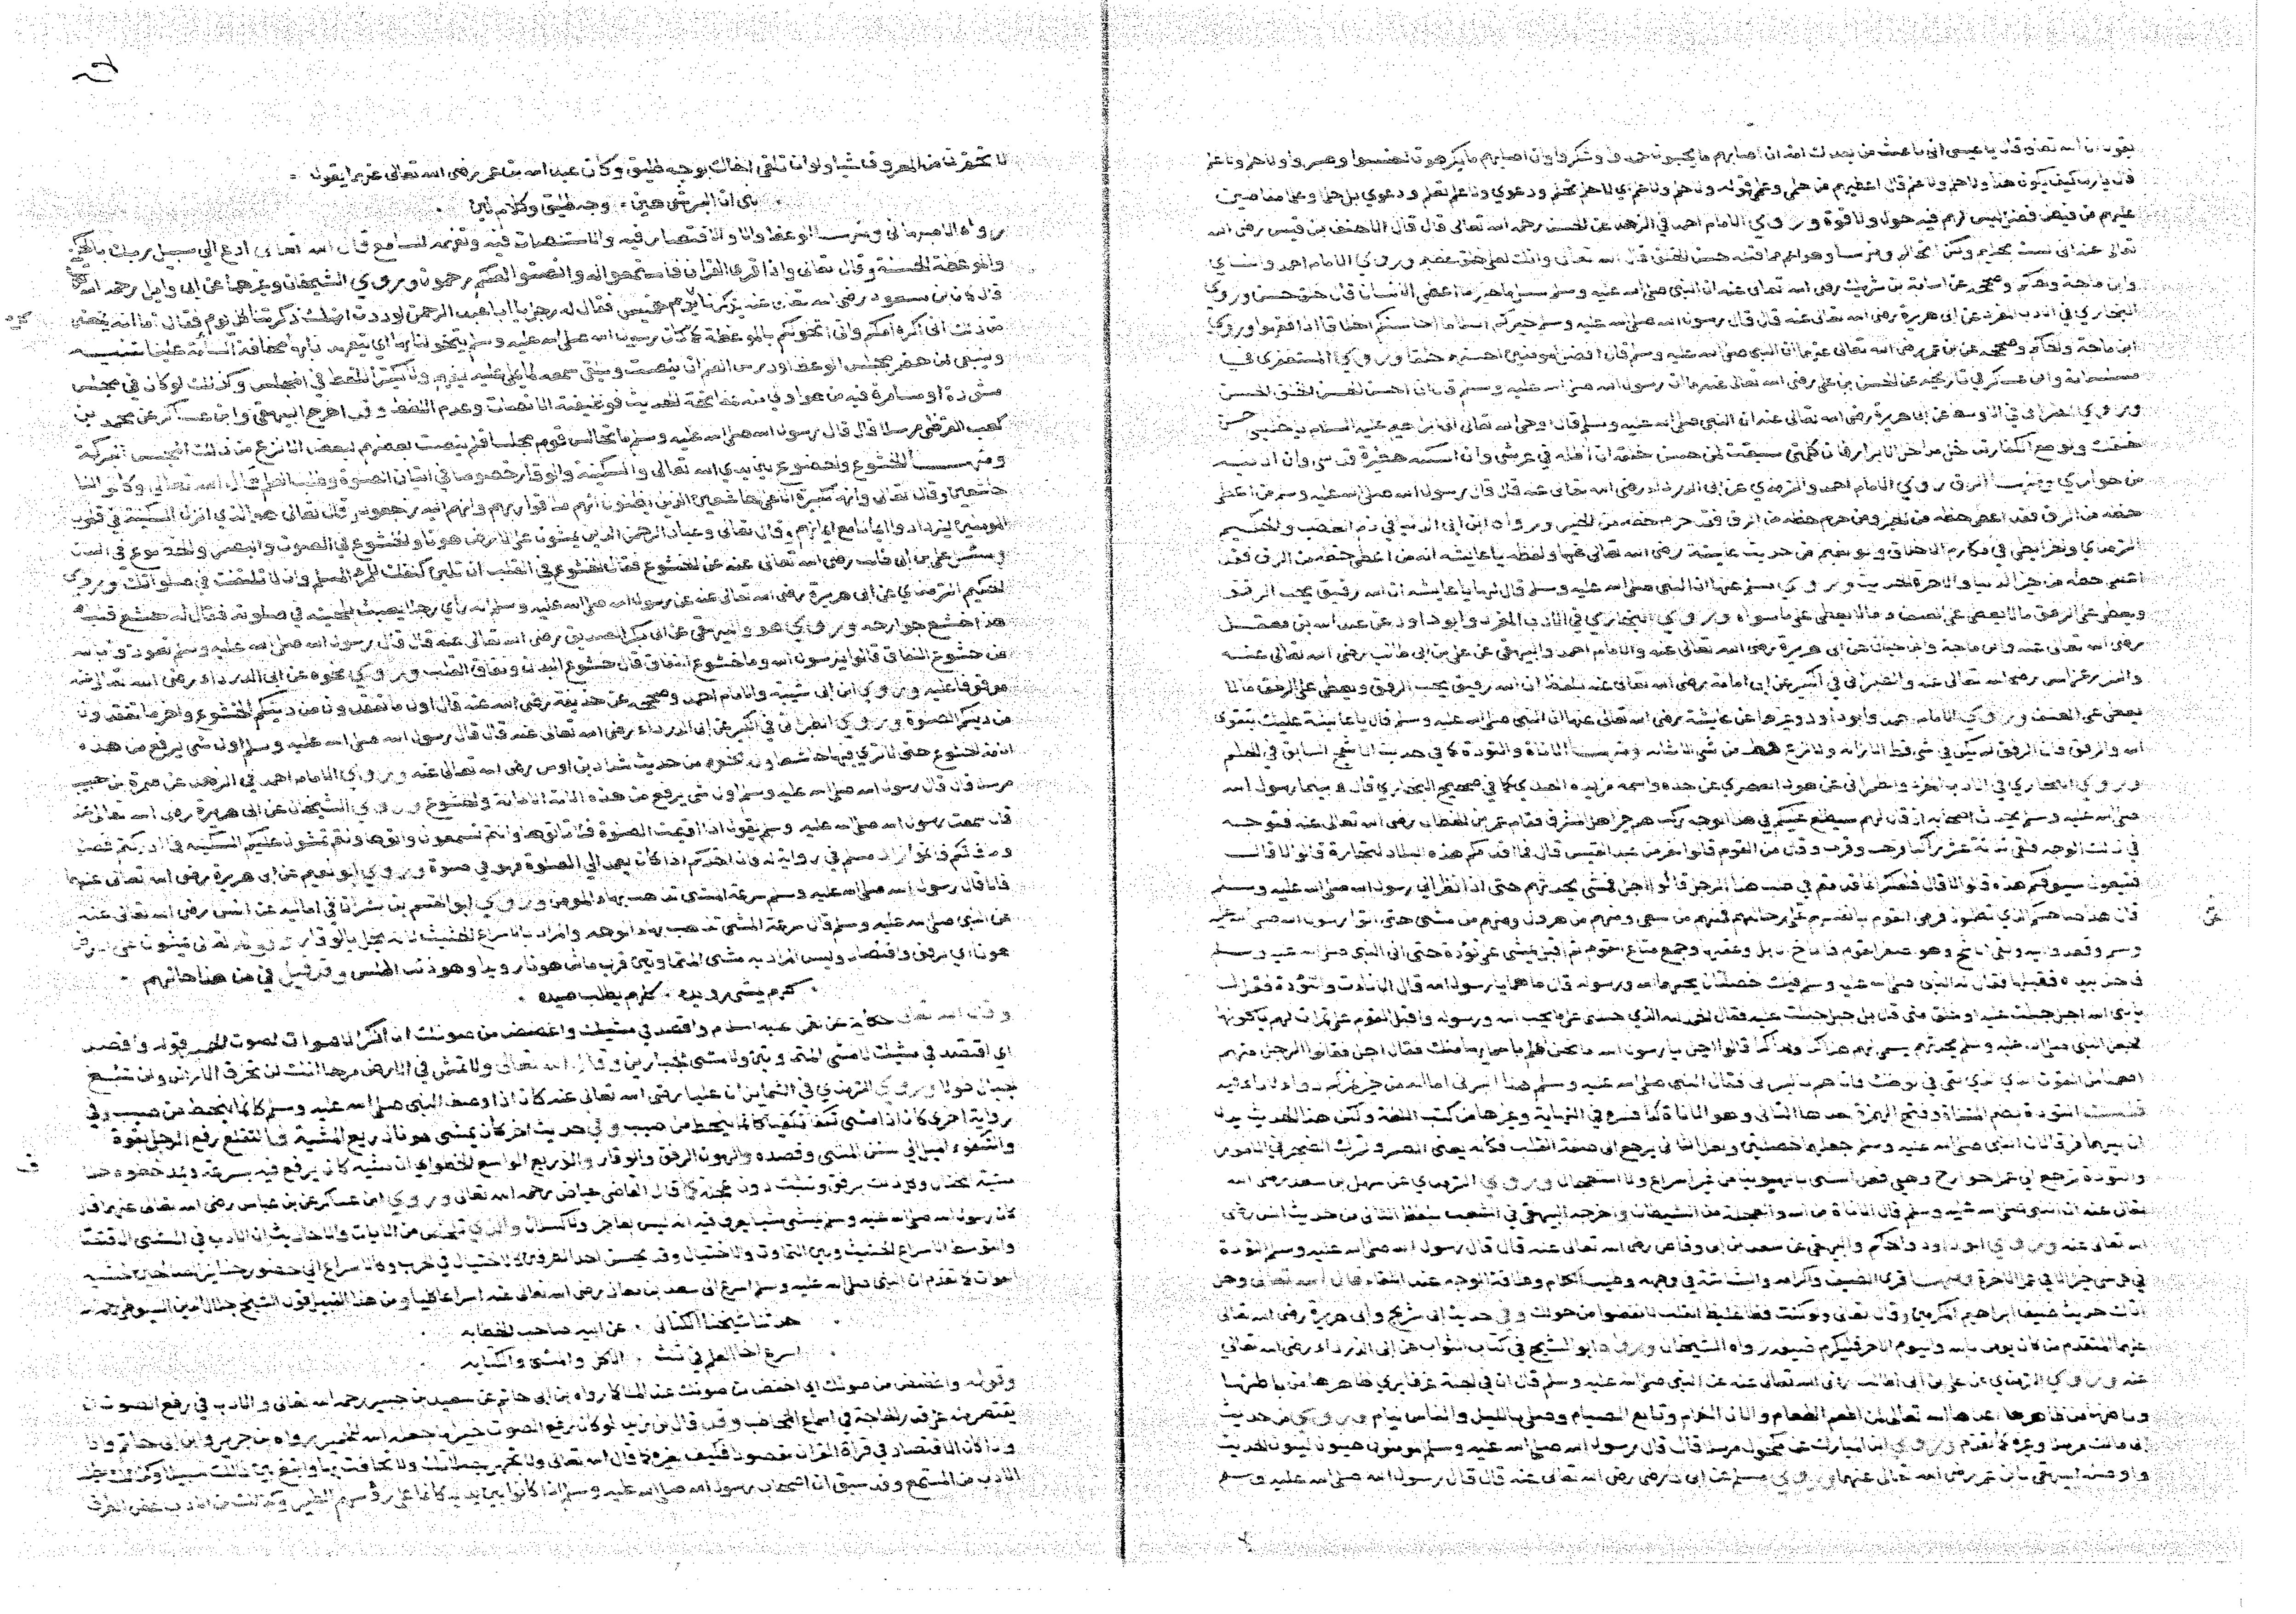 يقول ان الله تعالى قال يا عيسى اني باعث من بعدك امة ان اصابهم ما يحبون حمدوا وشكروا وان اصابهم ما يكرهون احتسبوا وصبروا ولا حلم ولا علم
قال يا رب كيف يكون هذا ولا حلم ولا علم قال اعطيهم من حلمي وعلمي
ليس لهم فيه حول ولا قوة وروى الامام احمد في الزهد عن الحسن رحمه الله تعالى قال قال الاحنف بن قيس رضي الله
تعالى عنه اني لست بحليم ولكن اتحالم ومنها حسن الخلق قال الله تعالى وانك لعلى خلق عظيم وروى الامام احمد والنسائي
وابن ماجة والحاكم وصححه عن اسامة بن شريك رضي الله تعالى عنه ان النبي صلى الله عليه وسلم سئل ما خير ما اعطي الانسان قال خلق حسن وروى
البخاري في الادب المفرد عن ابي هريرة رضي الله تعالى عنه قال قال رسول الله صلى الله عليه وسلم خيركم اسلاما احاسنكم اخلاقا اذا فقهوا وروى
ابن ماجة والحاكم وصححه عن بن عمر رضي الله تعالى عنهما ان النبي صلى الله عليه وسلم قال افضل المؤمنين احسنهم خلقا وروى المستغفري في
مسلسلاته وابن عساكر في تاريخه عن الحسن بن علي رضي الله تعالى عنهما ان رسول الله صلى الله عليه وسلم قال ان احسن الحسن الخلق الحسن
وروى الطبراني في الاوسط عن ابي هريرة رضي الله تعالى عنه ان النبي صلى الله عليه وسلم قال اوحى الله تعالى الى ابراهيم عليه السلام يا خليلي حسن
خلقك ولو مع الكفار تدخل مداخل الابرار فان كلمتي سبقت لمن حسن خلقه ان اظله في عرشي وان اسكنه حظيرة قدسي وان ادنيه
من جواري ومنها الرفق روى الامام احمد والترمذي عن ابي الدرداء رضي الله تعالى عنه قال قال رسول الله صلى الله عليه وسلم من اعطي
حظه من الرفق فقد اعطي حظه من الخير ومن حرم حظه من الرفق فقد حرم حظه من الخير ورواه ابن ابي الدنيا في ذم الغضب والحكيم
الترمذي والخرائطي في مكارم الاخلاق وابو نعيم من حديث عايشة رضي الله تعالى عنها ولفظه يا عايشه انه من اعطي حظه من الرفق فقد
اعطي حظه من خير الدنيا والاخرة الحديث وروى مسلم عنها ان النبي صلى الله عليه وسلم قال لها يا عايشه ان الله رفيق يحب الرفق
ويعطي على الرفق ما لا يعطي على العنف وما لا يعطي على ما سواه وروى البخاري في الادب المفرد وابو داود عن عبد الله بن مغفل
رضي الله تعالى عنه وابن ماجة وابن حبان عن ابي هريرة رضي الله تعالى عنه والامام احمد والبيهقي عن علي بن ابي طالب رضي الله تعالى عنه
والبزار عن انس رضي الله تعالى عنه والطبراني في الكبير عن ابي امامة رضي الله تعالى عنه بلفظ ان الله رفيق يحب الرفق ويعطي على الرفق ما لا
يعطي على العنف وروى الامام احمد وابو داود وغيرها عن عايشة رضي الله تعالى عنها ان النبي صلى الله عليه وسلم قال يا عايشة عليك بتقوى
الله والرفق فان الرفق لم يكن في شي قط الا زانه ولا نزع من شي الا شانه ومنها الاناة والتؤدة كما في حديث الاشج السابق في الحلم
وروى البخاري في الادب المفرد والطبراني عن هود العصري عن جده واسمه مزيدة العبدي كما في صحيح البخاري قال بينما رسول الله
صلى الله عليه وسلم يحدث اصحابه اذ قال لهم سيطلع عليكم في هذا الوجه ركب هم خير اهل المشرق فقام عمر بن الخطاب رضي الله تعالى عنه فتوجه
في ذلك الوجه فلقي ثلاثة عشر راكبا فرحب وقرب وقال من القوم قالوا نفر من عبد القيس قال فما اقدمكم هذه البلاد التجارة قالوا لا قال
فتبيعون سيوفكم هذه قالوا لا قال فلعلكم انما قدمتم في طلب هذا الرجل قالوا اجل فمشى يحدثهم حتى اذا نظر الى رسول الله صلى الله عليه وسلم
قال هذا صاحبكم الذي تطلبون فرمى القوم بانفسهم عن رحالهم فمنهم من سعى ومنهم من هرول ومنهم من مشى حتى اتوا رسول الله صلى الله عليه
وسلم وقعدوا اليه وبقي الاشج وهو اصغر القوم فاناخ الابل وعقلها وجمع متاع القوم ثم اقبل يمشي على تؤدة حتى اتى النبي صلى الله عليه وسلم
فاخذ بيده فقبلها فقال له النبي صلى الله عليه وسلم فيك خصلتان يحبهما الله ورسوله قال ما هما يا رسول الله قال الاناة والتؤدة فقال
يا نبي الله اجبل جبلت عليه او خلق مني قال بل جبل جبلت عليه فقال الحمد لله الذي جبلني على ما يحب الله ورسوله واقبل القوم على تمرات لهم ياكلونها
فجعل النبي صلى الله عليه وسلم يحدثهم يسمي لهم هذا كذا وهذا كذا قالوا اجل يا رسول الله ما نحن باعلم باسمائها منك فقال اجل فقالوا لرجل منهم
اطعمنا من القوت الذي بقي في نوطك فاتاهم بالبرني فقال النبي صلى الله عليه وسلم هذا البرني اما انه من خير تمركم دواء لا داء فيه
قلت التؤدة بضم المثناة وفتح الهمزة بعدها التاني وهو الاناة كما وقع في النهاية وغيرها من كتب اللغة ولكن هذا الحديث يدل
تعالى عنه ان النبي صلى الله عليه وسلم قال الاناة من الله والعجلة من الشيطان واخرجه البيهقي في الشعب بلفظ التاني من حديث انس رضي
الله تعالى عنه وروى ابو داود والحاكم والبيهقي عن سعد بن ابي وقاص رضي الله تعالى عنه قال قال رسول الله صلى الله عليه وسلم التؤدة
في كل شي خير الا في عمل الاخرة ومنها قرى الضيف واكرامه والبشاشة في وجهه وطيب الكلام وطلاقة الوجه عند اللقاء قال الله تعالى وهل
اتاك حديث ضيف ابراهيم المكرمين وقال تعالى ولو كنت فظا غليظ القلب لانفضوا من حولك وفي حديث ابي شريح وابي هريرة رضي الله تعالى
عنهما المتقدم من كان يومن بالله واليوم الاخر فليكرم ضيفه رواه الشيخان وروى ابو الشيخ في كتاب الثواب عن ابي الدرداء رضي الله تعالى
عنه وروى الترمذي عن علي بن ابي طالب رضي الله تعالى عنه عن النبي صلى الله عليه وسلم قال ان في الجنة غرفا يرى ظاهرها من باطنها
وباطنها من ظاهرها اعدها الله تعالى لمن اطعم الطعام والان الكلام وتابع الصيام وصلى بالليل والناس نيام وروى من حديث
ابي مالك وغيره كما تقدم وروى ابن المبارك عن مكحول مرسلا قال قال رسول الله صلى الله عليه وسلم المومنون هينون لينون الحديث
واوصله البيهقي عن ابن عمر رضي الله تعالى عنهما وروى مسلم عن ابي ذر رضي الله تعالى عنه قال قال رسول الله صلى الله عليه وسلم
لا تحقرن من المعروف شيا ولو ان تلقى اخاك بوجه طليق وكان عبد الله بن عمر رضي الله تعالى عنهما يقول
بني ان البر شي هين وجه طليق وكلام لين
رواه الاصبهاني ومنها الوعظ والاقتصار فيه والانصات فيه قال الله تعالى ادع الى سبيل ربك بالحكمة
والموعظة الحسنة وقال تعالى واذا قرئ القران فاستمعوا له وانصتوا لعلكم ترحمون وروى الشيخان وغيرهما عن ابي وايل رحمه الله
قال كان بن مسعود رضي الله تعالى عنه يذكرنا كل يوم خميس فقال له رجل يا ابا عبد الرحمن لوددت انك ذكرتنا كل يوم فقال اما انه يمنعني
من ذلك اني اكره ان املكم واني اتخولكم بالموعظة كما كان رسول الله صلى الله عليه وسلم يتخولنا بها مخافة السآمة علينا تنبيه
وينبغي لمن حضر مجلس الوعظ او درس العلم ان ينصت ويلقي سمعه ولا يكثر اللغط في المجلس وكذلك لو كان في مجلس
كعب القرظي مرسلا قال قال رسول الله صلى الله عليه وسلم ما تجالس قوم مجلسا فلم ينصت بعضهم لبعض الا نزع من ذلك المجلس البركة
ومنها الخشوع والخضوع بين يدي الله تعالى والسكينة والوقار خصوصا في اتيان الصلوة وطلب العلم قال الله تعالى وكانوا لنا
خاشعين وقال تعالى وانها لكبيرة الا على الخاشعين الذين يظنون انهم ملاقوا ربهم وانهم اليه راجعون وقال تعالى هو الذي انزل السكينة في قلوب
المومنين ليزدادوا ايمانا مع ايمانهم وقال تعالى وعباد الرحمن الذين يمشون على الارض هونا والخشوع في الصوت والبصر والخضوع في البدن
وسئل علي بن ابي طالب رضي الله تعالى عنه عن الخشوع فقال الخشوع في القلب ان تلين كنفك للمرء المسلم وان لا تلتفت في صلواتك وروى
الحكيم الترمذي عن ابي هريرة رضي الله تعالى عنه عن رسول الله صلى الله عليه وسلم انه راى رجلا يعبث بلحيته في صلوته فقال لو خشع قلب
هذا خشع جوارحه وروى هو والبيهقي عن ابي بكر الصديق رضي الله تعالى عنه قال قال رسول الله صلى الله عليه وسلم تعوذوا بالله
من خشوع النفاق قالوا يا رسول الله وما خشوع النفاق قال خشوع البدن ونفاق القلب وروى نحوه عن ابي الدرداء رضي الله تعالى عنه
موقوفا عليه وروى ابن ابي شيبة والامام احمد وصححه عن حذيفة رضي الله عنه قال اول ما تفقدون من دينكم الخشوع واخر ما تفقدون
من دينكم الصلوة وروى الطبراني في الكبير عن ابي الدرداء رضي الله تعالى عنه قال قال رسول الله صلى الله عليه وسلم اول شي يرفع من هذه
الامة الخشوع حتى لا ترى فيها خاشعا ونحوه من حديث شداد بن اوس رضي الله تعالى عنه وروى الامام احمد في الزهد عن ضمرة بن حبيب
مرسلا قال قال رسول الله صلى الله عليه وسلم اول شي يرفع من هذه الامة الامانة والخشوع وروى الشيخان عن ابي هريرة رضي الله تعالى عنه
قال سمعت رسول الله صلى الله عليه وسلم يقول اذا اقيمت الصلوة فلا تاتوها وانتم تسعون واتوها وانتم تمشون عليكم السكينة فما ادركتم فصلوا
وما فاتكم فاتموا زاد مسلم في رواية له فان احدكم اذا كان يعمد الى الصلوة فهو في صلوة وروى ابو نعيم عن ابي هريرة رضي الله تعالى عنه
قال قال رسول الله صلى الله عليه وسلم سرعة المشي تذهب بهاء المومن وروى ابو القاسم بن بشران في اماليه عن انس رضي الله تعالى عنه
عن النبي صلى الله عليه وسلم قال سرعة المشي تذهب بهاء الوجه والمراد بها الاسراع الحثيث لانه يخل بالوقار
هونا اي برفق واقتصاد وليس المراد به مشي المتماوتين
كلهم يمشي رويد كلهم يطلب صيد
وقال الله تعالى حكاية عن لقمن عليه السلام واقصد في مشيك واغضض من صوتك ان انكر الاصوات لصوت الحمير قوله واقصد
اي اقتصد في مشيك لا مشي المتماوتين ولا مشي الجبارين وقال الله تعالى ولا تمش في الارض مرحا انك لن تخرق الارض ولن تبلغ
الجبال طولا وروى الترمذي في الشمايل ان عليا رضي الله تعالى عنه كان اذا وصف النبي صلى الله عليه وسلم كانما ينحط من صبب وفي
رواية اخرى كان اذا مشى تكفا تكفيا كانما ينحط من صبب وفي حديث اخر كان يمشي هونا ذريع المشية والتقلع رفع الرجل بقوة
والتكفؤ الميل الى سنن المشي وقصده والهون الرفق والوقار والذريع الواسع الخطو اي ان مشيه كان يرفع فيه بسرعة ويمد خطوه خلاف
مشية المختال وكل ذلك برفق وتثبت دون عجلة كما قال القاضي عياض رحمه الله تعالى وروى ابن عساكر عن بن عباس رضي الله تعالى عنهما قال
كان رسول الله صلى الله عليه وسلم يمشي مشيا يعرف فيه انه ليس بعاجز ولا كسلان والذي تلخص من الايات والاحاديث ان الادب في المشي الاقتصاد
والتوسط بين الاسراع الحثيث وبين التماوت والاختيال وقد يحسن احد الطرفين كالاختيال في الحرب وكالاسراع الى حضور جنايز الصالحين خشية
الفوت كما تقدم ان النبي صلى الله عليه وسلم اسرع الى سعد بن معاذ رضي الله تعالى عنه اسراعا كليا ومن هذا القبيل قول الشيخ جلال الدين السيوطي رحمه الله
حدثنا شيخنا الكناني عن ابيه صاحب الخطابه
اسرع اخا العلم في ثلاث الاكل والمشي والكتابه
وقوله واغضض من صوتك اي اخفض من صوتك عند الملا كما رواه بن ابي حاتم عن سعيد بن جبير رحمه الله تعالى والادب في رفع الصوت ان
يقتصر منه على قدر الحاجة في اسماع المخاطب وقد قال بن زيد لو كان رفع الصوت خيرا ما جعله الله للحمير رواه بن جرير وابن ابي حاتم واذا
كان الاقتصاد في قراة القران مقصودا فكيف بغيره كما قال الله تعالى ولا تجهر بصلاتك ولا تخافت بها وابتغ بين ذلك سبيلا
الادب من المستمع وقد سبق ان اصحاب رسول الله صلى الله عليه وسلم اذا كانوا بين يديه كانما على رؤسهم الطير وكذلك من الادب غض الطرف